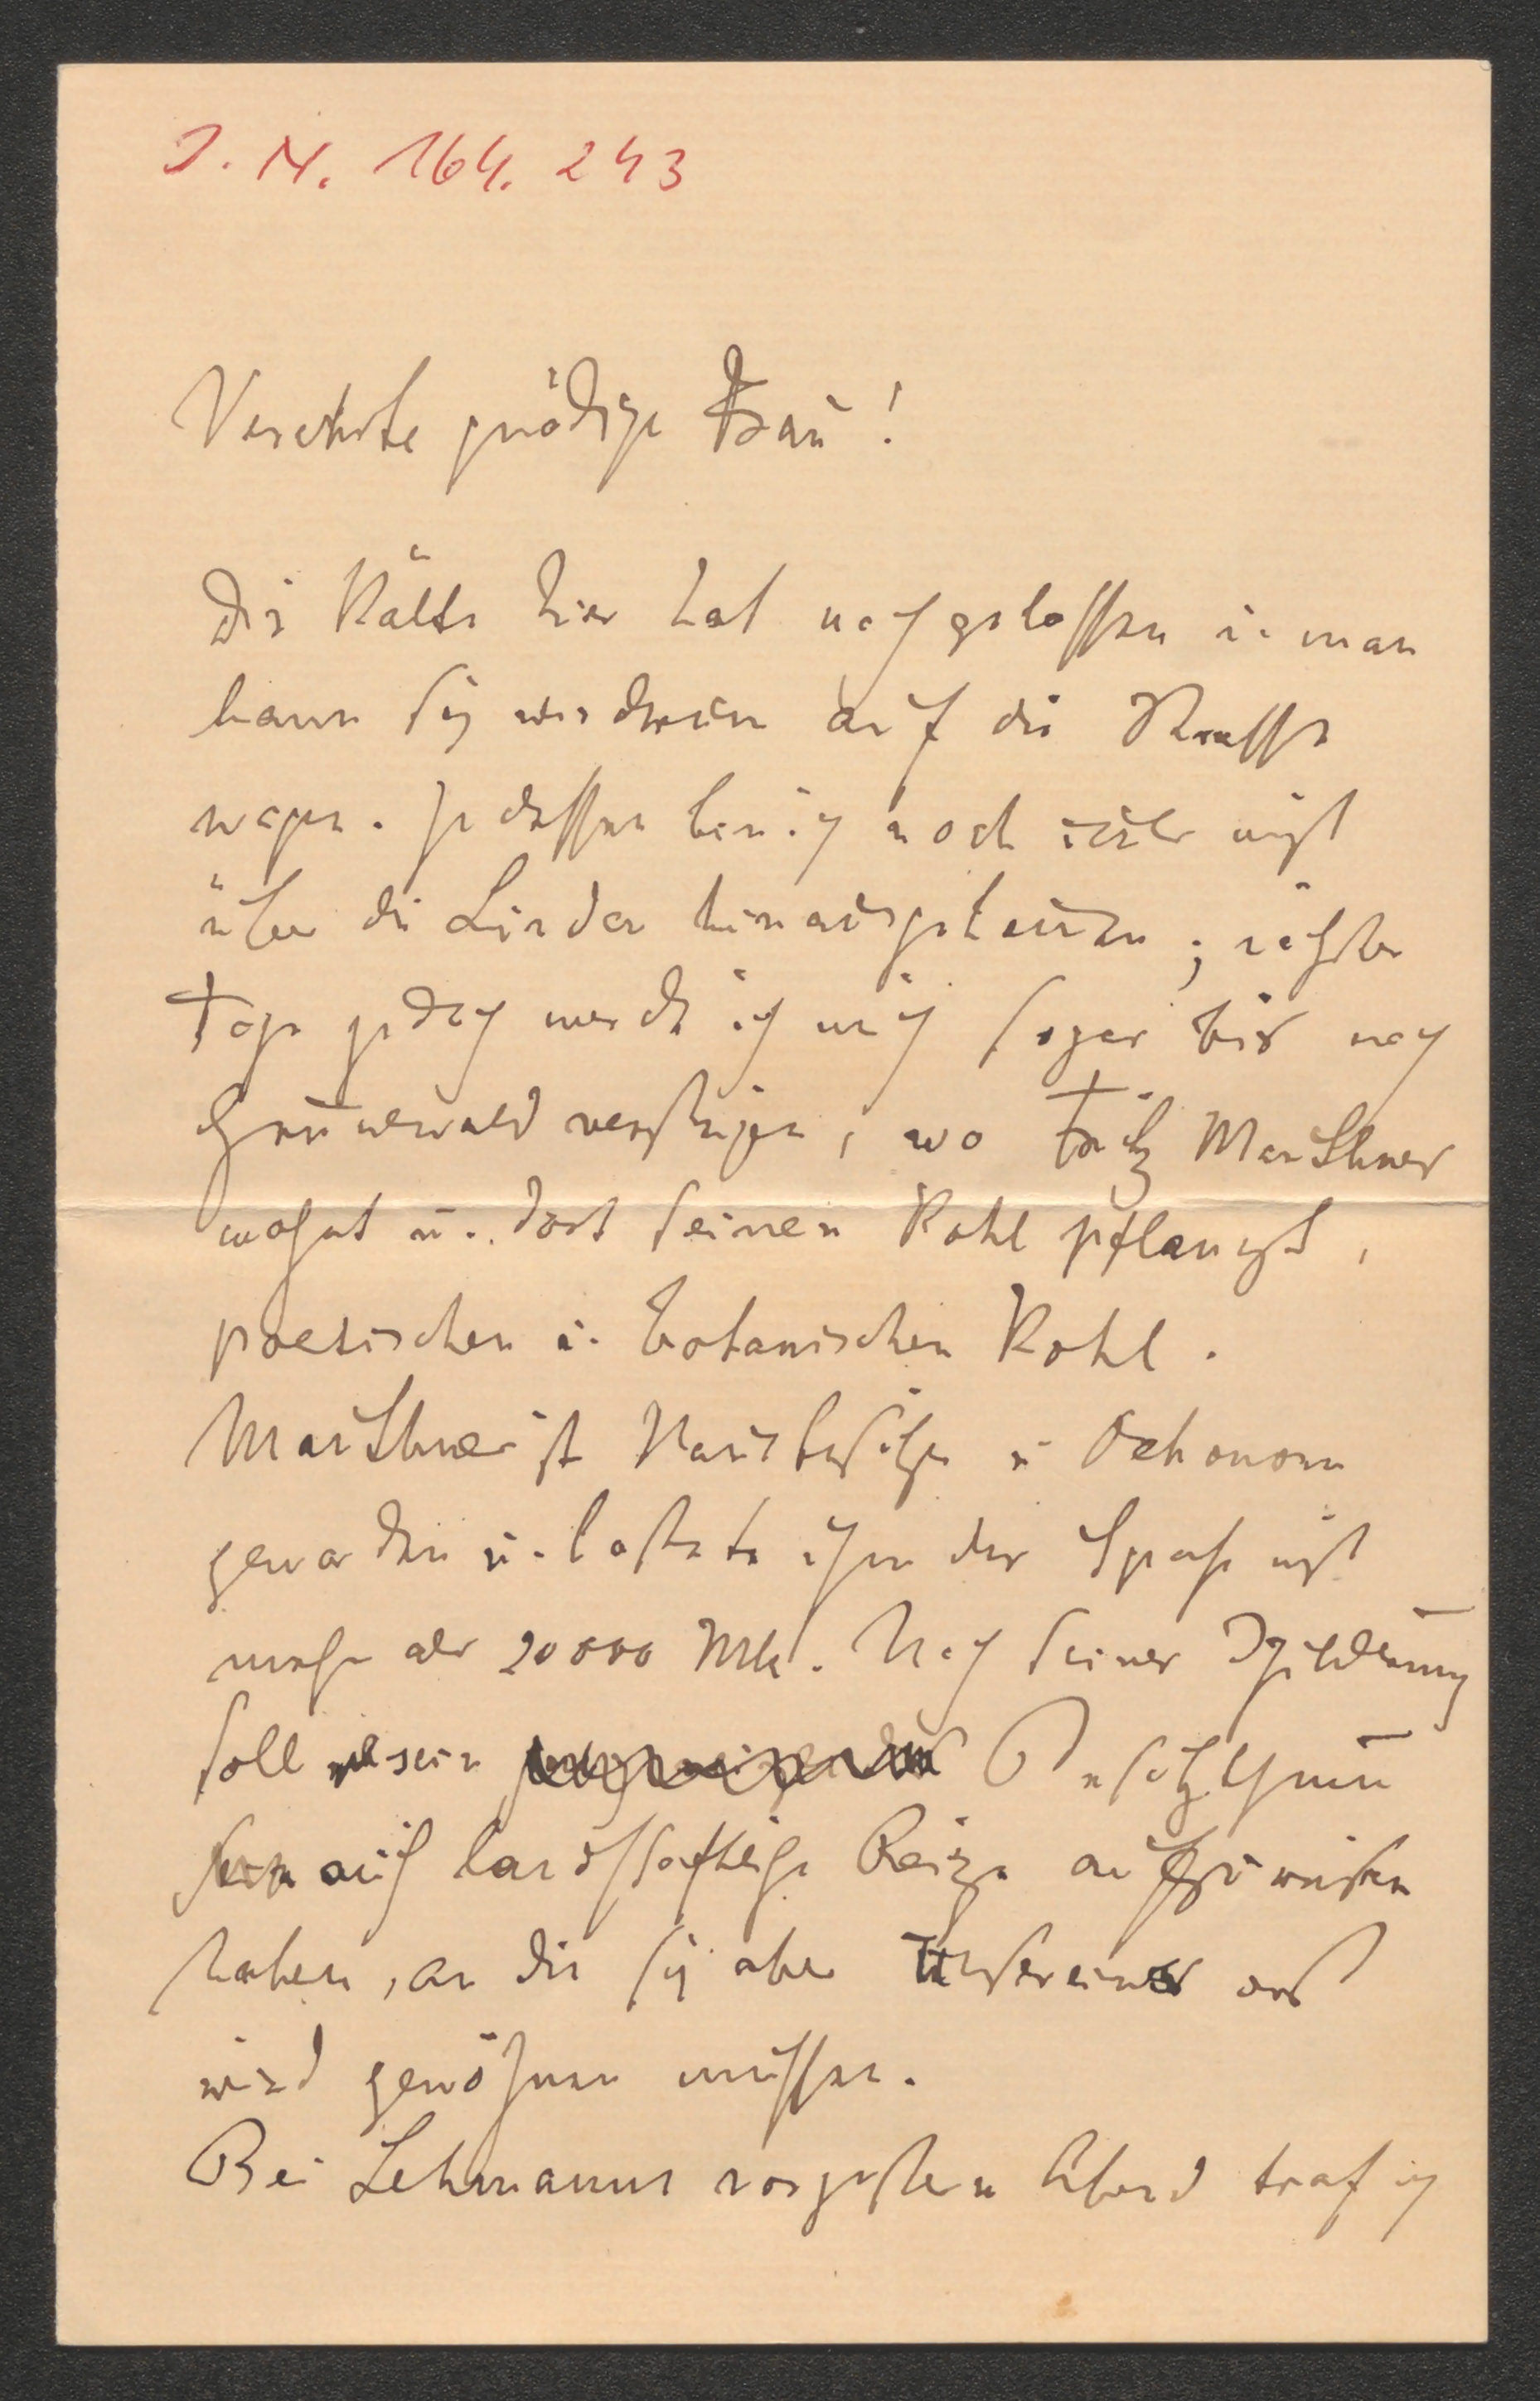 J. N. 164.243
Verehrte gnädige Frau!
Die Kälte hier hat nachgelassen u. man
kann sich wiederum auf die Strasse
wagen. Indessen bin ich noch nicht
über die Linden hinausgekommen; nächster
Tage jedoch werde ich mich sogar bis nach
Grunewald versteigen, wo Fritz Mauthner
wohnt u. dort seinen Kohl pflanzt,
poetischen u. botanischen Kohl.
Mauthner ist Hausbesitzer u Oekonom
geworden u. kostete ihm der Spaß nicht
mehr als 20000 Mk. Nach seiner Schilderung
soll sein Besitzthum
auch landschaftliche Reize aufzuweisen
haben, an die sich aber Unsereiner erst
wird gewöhnen müssen.
Bei Lehmanns vorgestern Abend traf ich